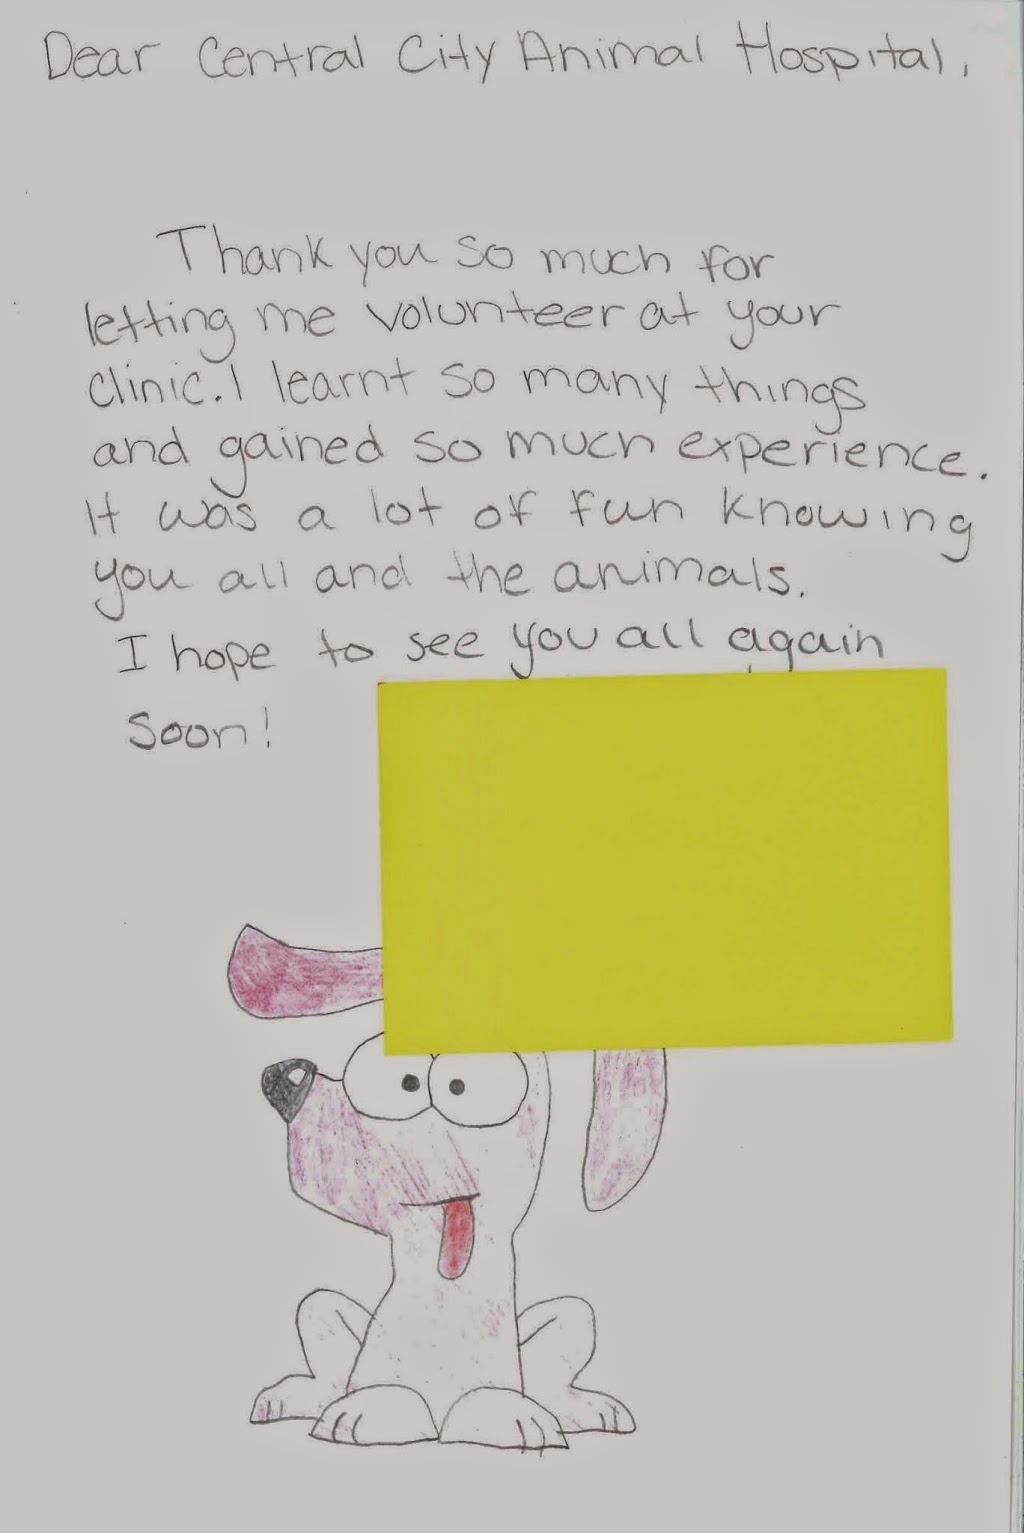 Dear Central City Animal Hospital,
Thank you so much for
letting me volunteer at your
clinic. I learnt so many things
and gained so much experience.
It was a lot of fun knowing
you all and the animals.
I hope to see you all again
soon!